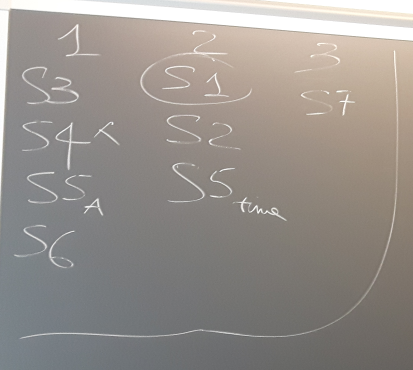 1 2 3
S3 S1 S7
S4 x S2
S5 A S5 time
S6